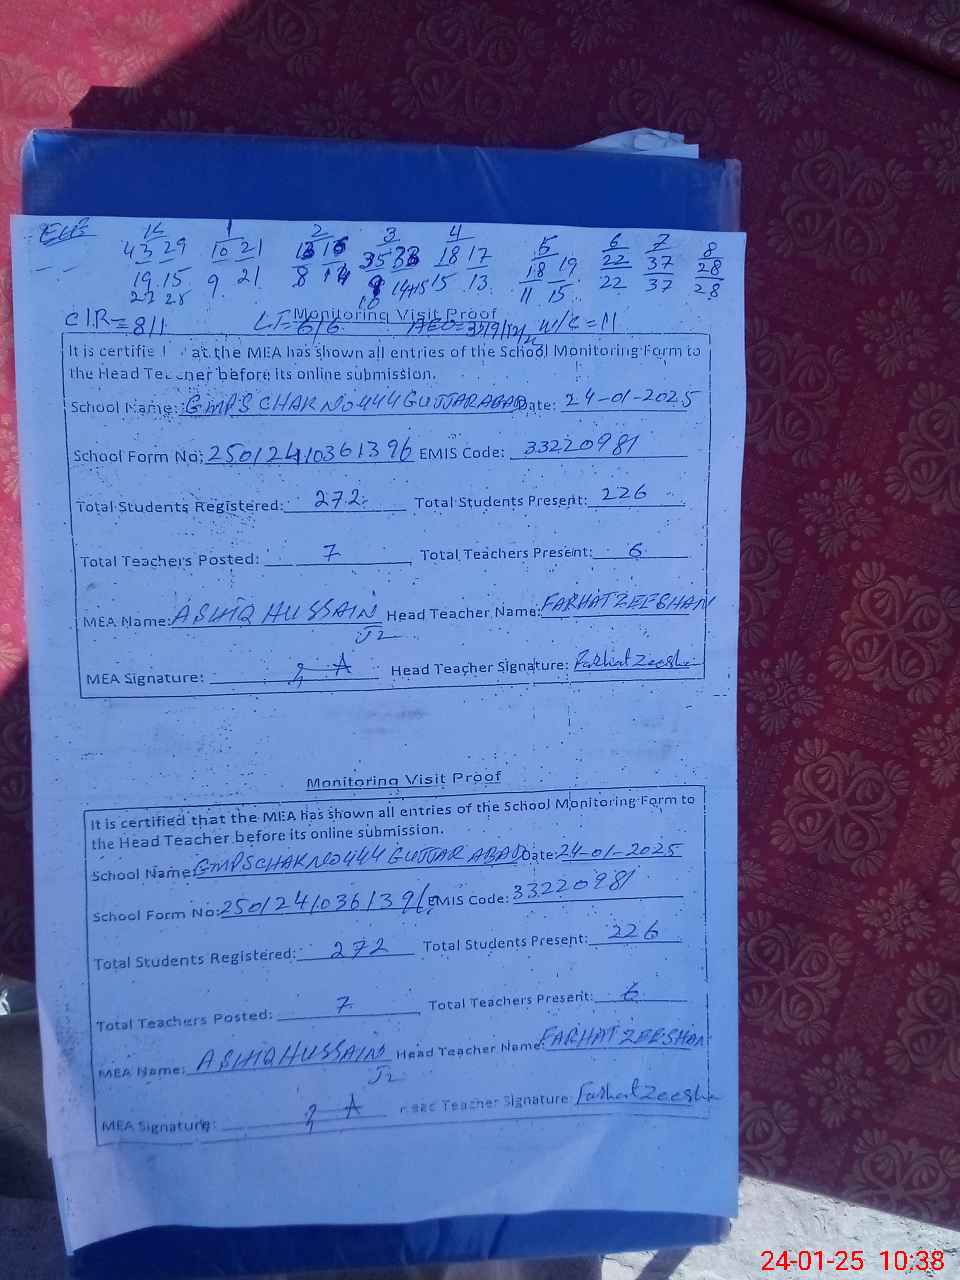 K 1 2 3 4 5 6 7 8
43 29 10 21 18 17 18 19 22 37 28
19 15 9 21 8 14 15 13 11 15 22 37 28
C/R=8/1 w/c=11
Monitoring Visit Proof
It is certifie at the MEA has shown all entries of the School Monitoring Form to
the Head Teacher before its online submission.
School Name: GMPS CHAK No 444 GUJJARABAD Date: 24-01-2025
School Form No: 25012410361396 EMIS Code: 33220981
Total Students Registered: 272 Total Students Present: 226
Total Teachers Posted: 7 Total Teachers Present: 6
MEA Name: ASHIQ HUSSAIN Head Teacher Name: FARHAT ZEESHAN
MEA Signature: Head Teacher Signature: Farhat Zeesha
Monitoring Visit Proof
It is certified that the MEA has shown all entries of the School Monitoring Form to
the Head Teacher before its online submission.
School Name: GMPS CHAK No 444 GUJJAR ABAD Date: 24-01-2025
School Form No: 25012410361396 EMIS Code: 33220981
Total Students Registered: 272 Total Students Present: 226
Total Teachers Posted: 7 Total Teachers Present: 6
MEA Name: ASHIQ HUSSAIN Head Teacher Name: FARHAT ZEESHAN
MEA Signature: Head Teacher Signature: Farhat Zeesha
24-01-25 10:38